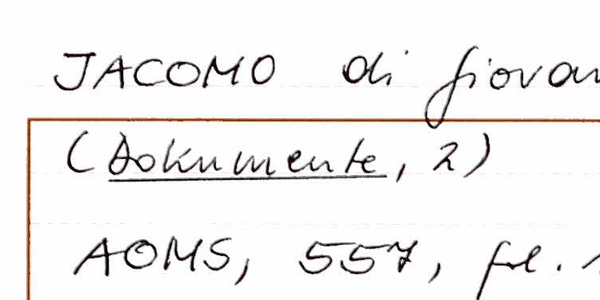 JACOMO di giovan
(Dokumente, 2)
AOMS, 557, fol. 1